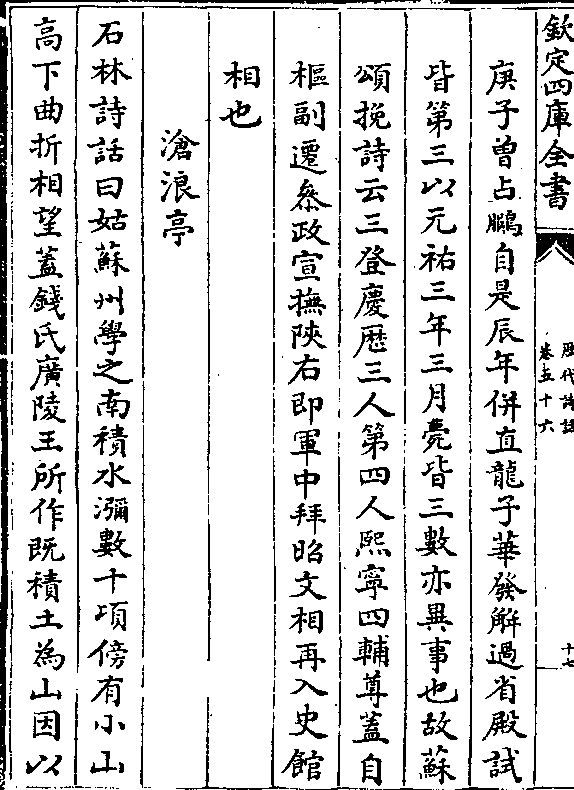 欽定四庫全書
歴代詩話
卷五十六
十七
庚子曽占鵩自是辰年併直龍子華發解過省殿試
皆第三以元祐三年三月薨皆三數亦異事也故蘇
頌挽詩云三登慶厯三人第四人熙寧四輔尊蓋自
樞副遷叅政宣撫陜右即軍中拜昭文相再入史館
相也
滄浪亭
石林詩話曰姑蘇州學之南積水瀰數十項傍有小山
高下曲折相望蓋錢氏廣陵王所作既積土為山因以